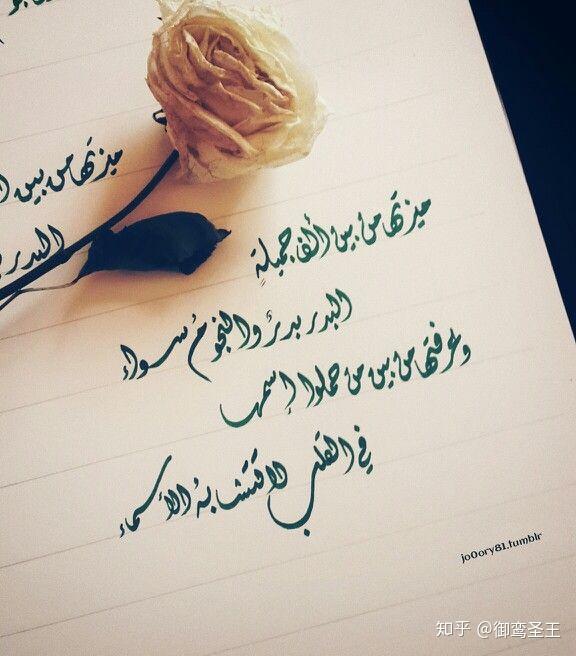 ميزتها من بين
البدر
ميزتها من بين ألف جميلةٍ
البدر بدرٌ والنجومُ سواء
وعرفتها من بين من حملوا إسمها
في القلب لا تتشابهُ الأسماء
jo0ory81.tumblr
知乎 @御鸾圣王